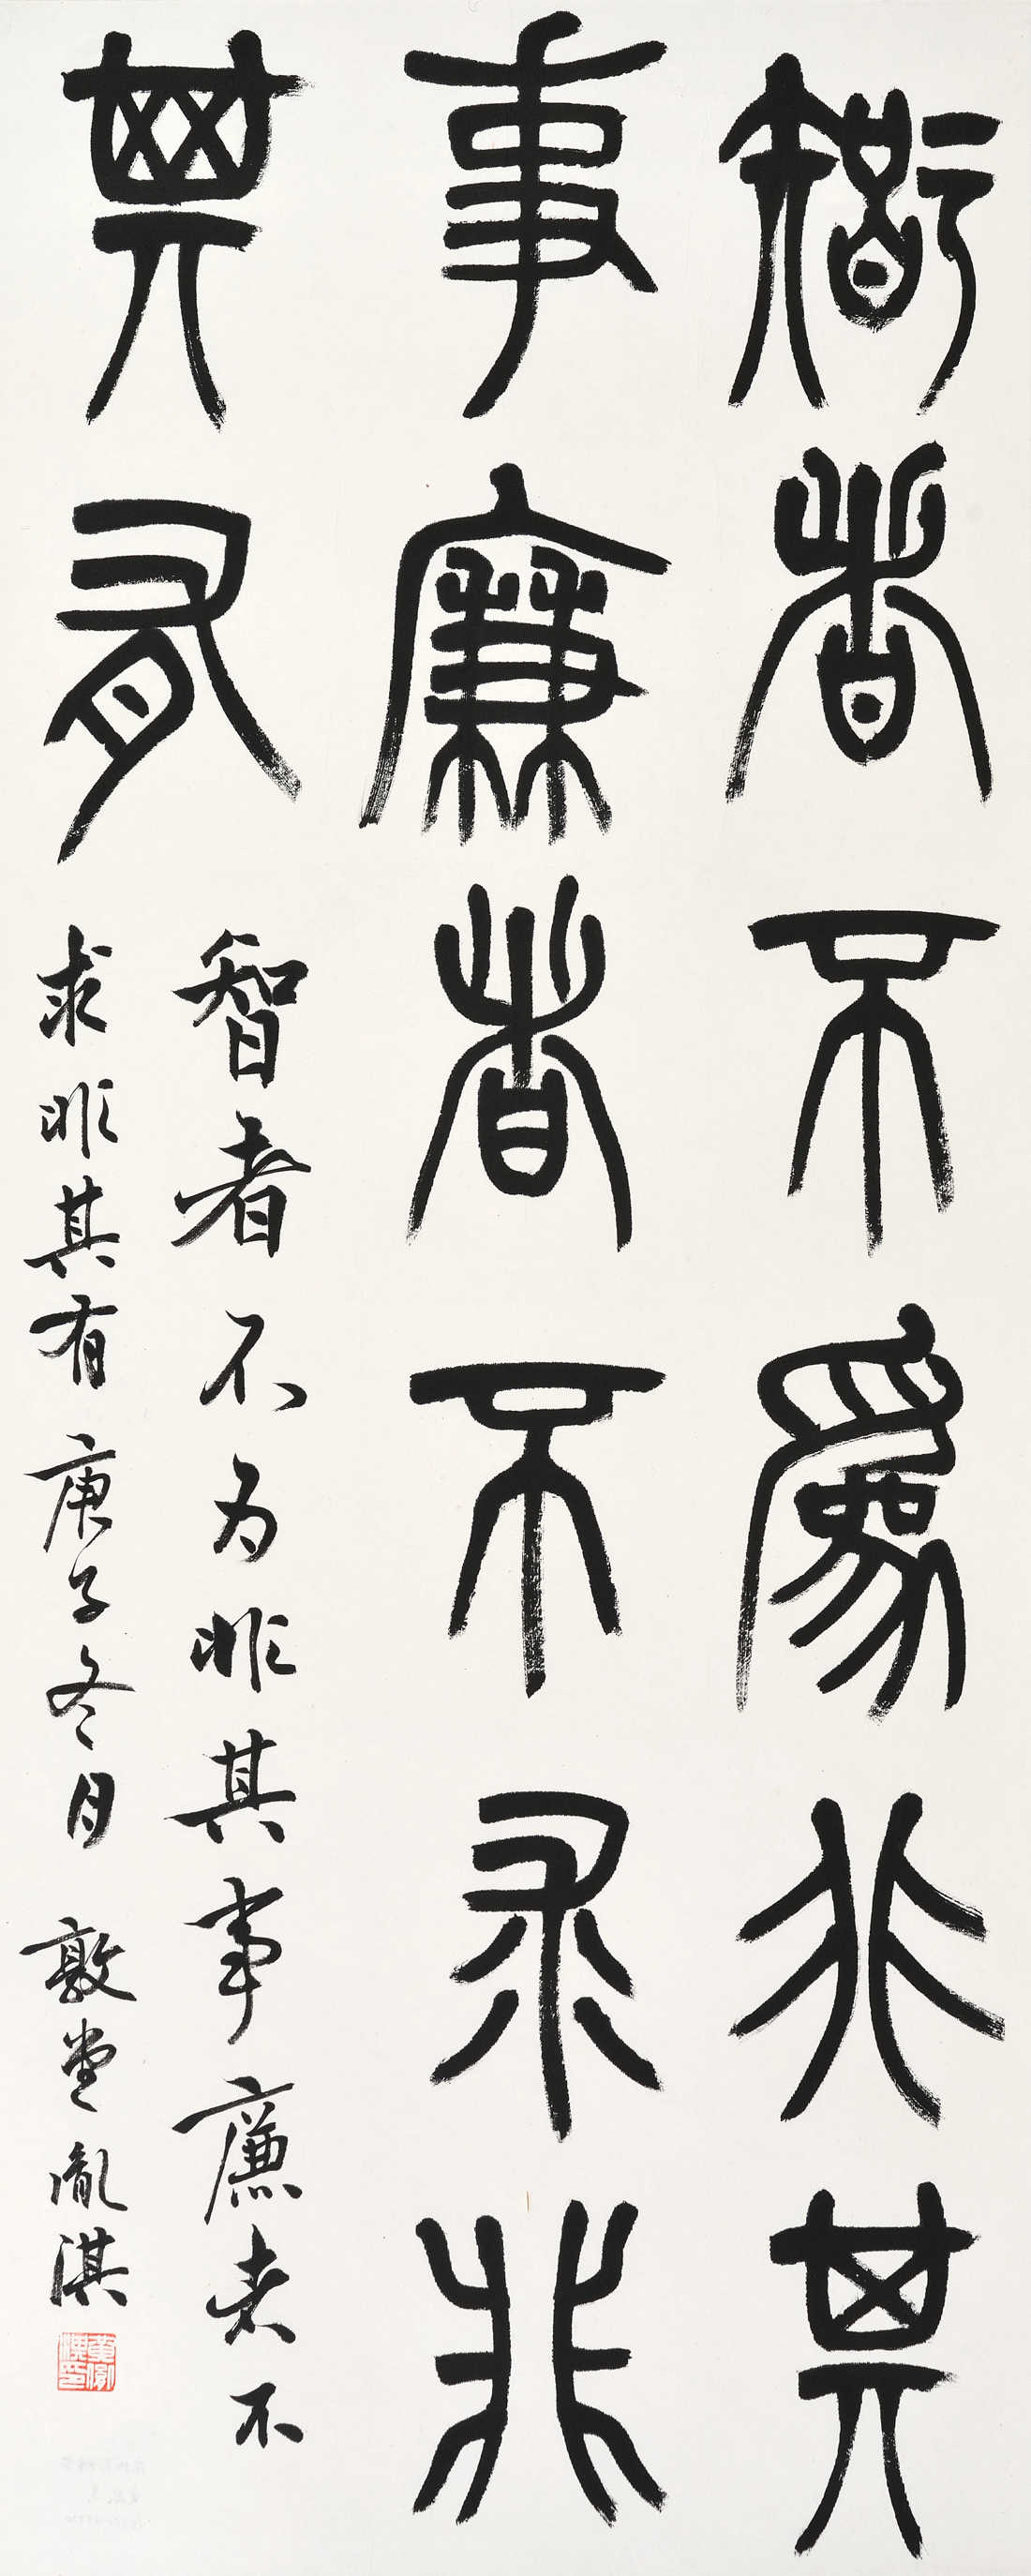 智者不為非其
事廉者不求非
其有
智者不为非其事廉者不
求非其有庚子冬月敦堂胤淇